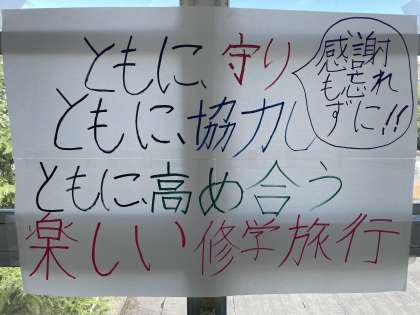 ともに、守り
ともに、協力し
ともに、高め合う
楽しい修学旅行
感謝
も忘れ
ずに!!